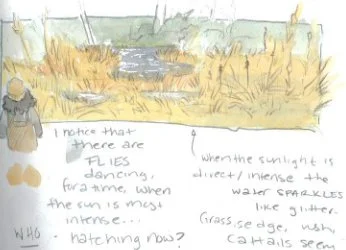 I notice that
there are
FLIES
dancing,
for a time, when
the sun is most
intense...
- hatching now?
WHO
when the sunlight is
direct/intense the
water SPARKLES
like glitter.
Grass, sedge, rush,
cattails seem